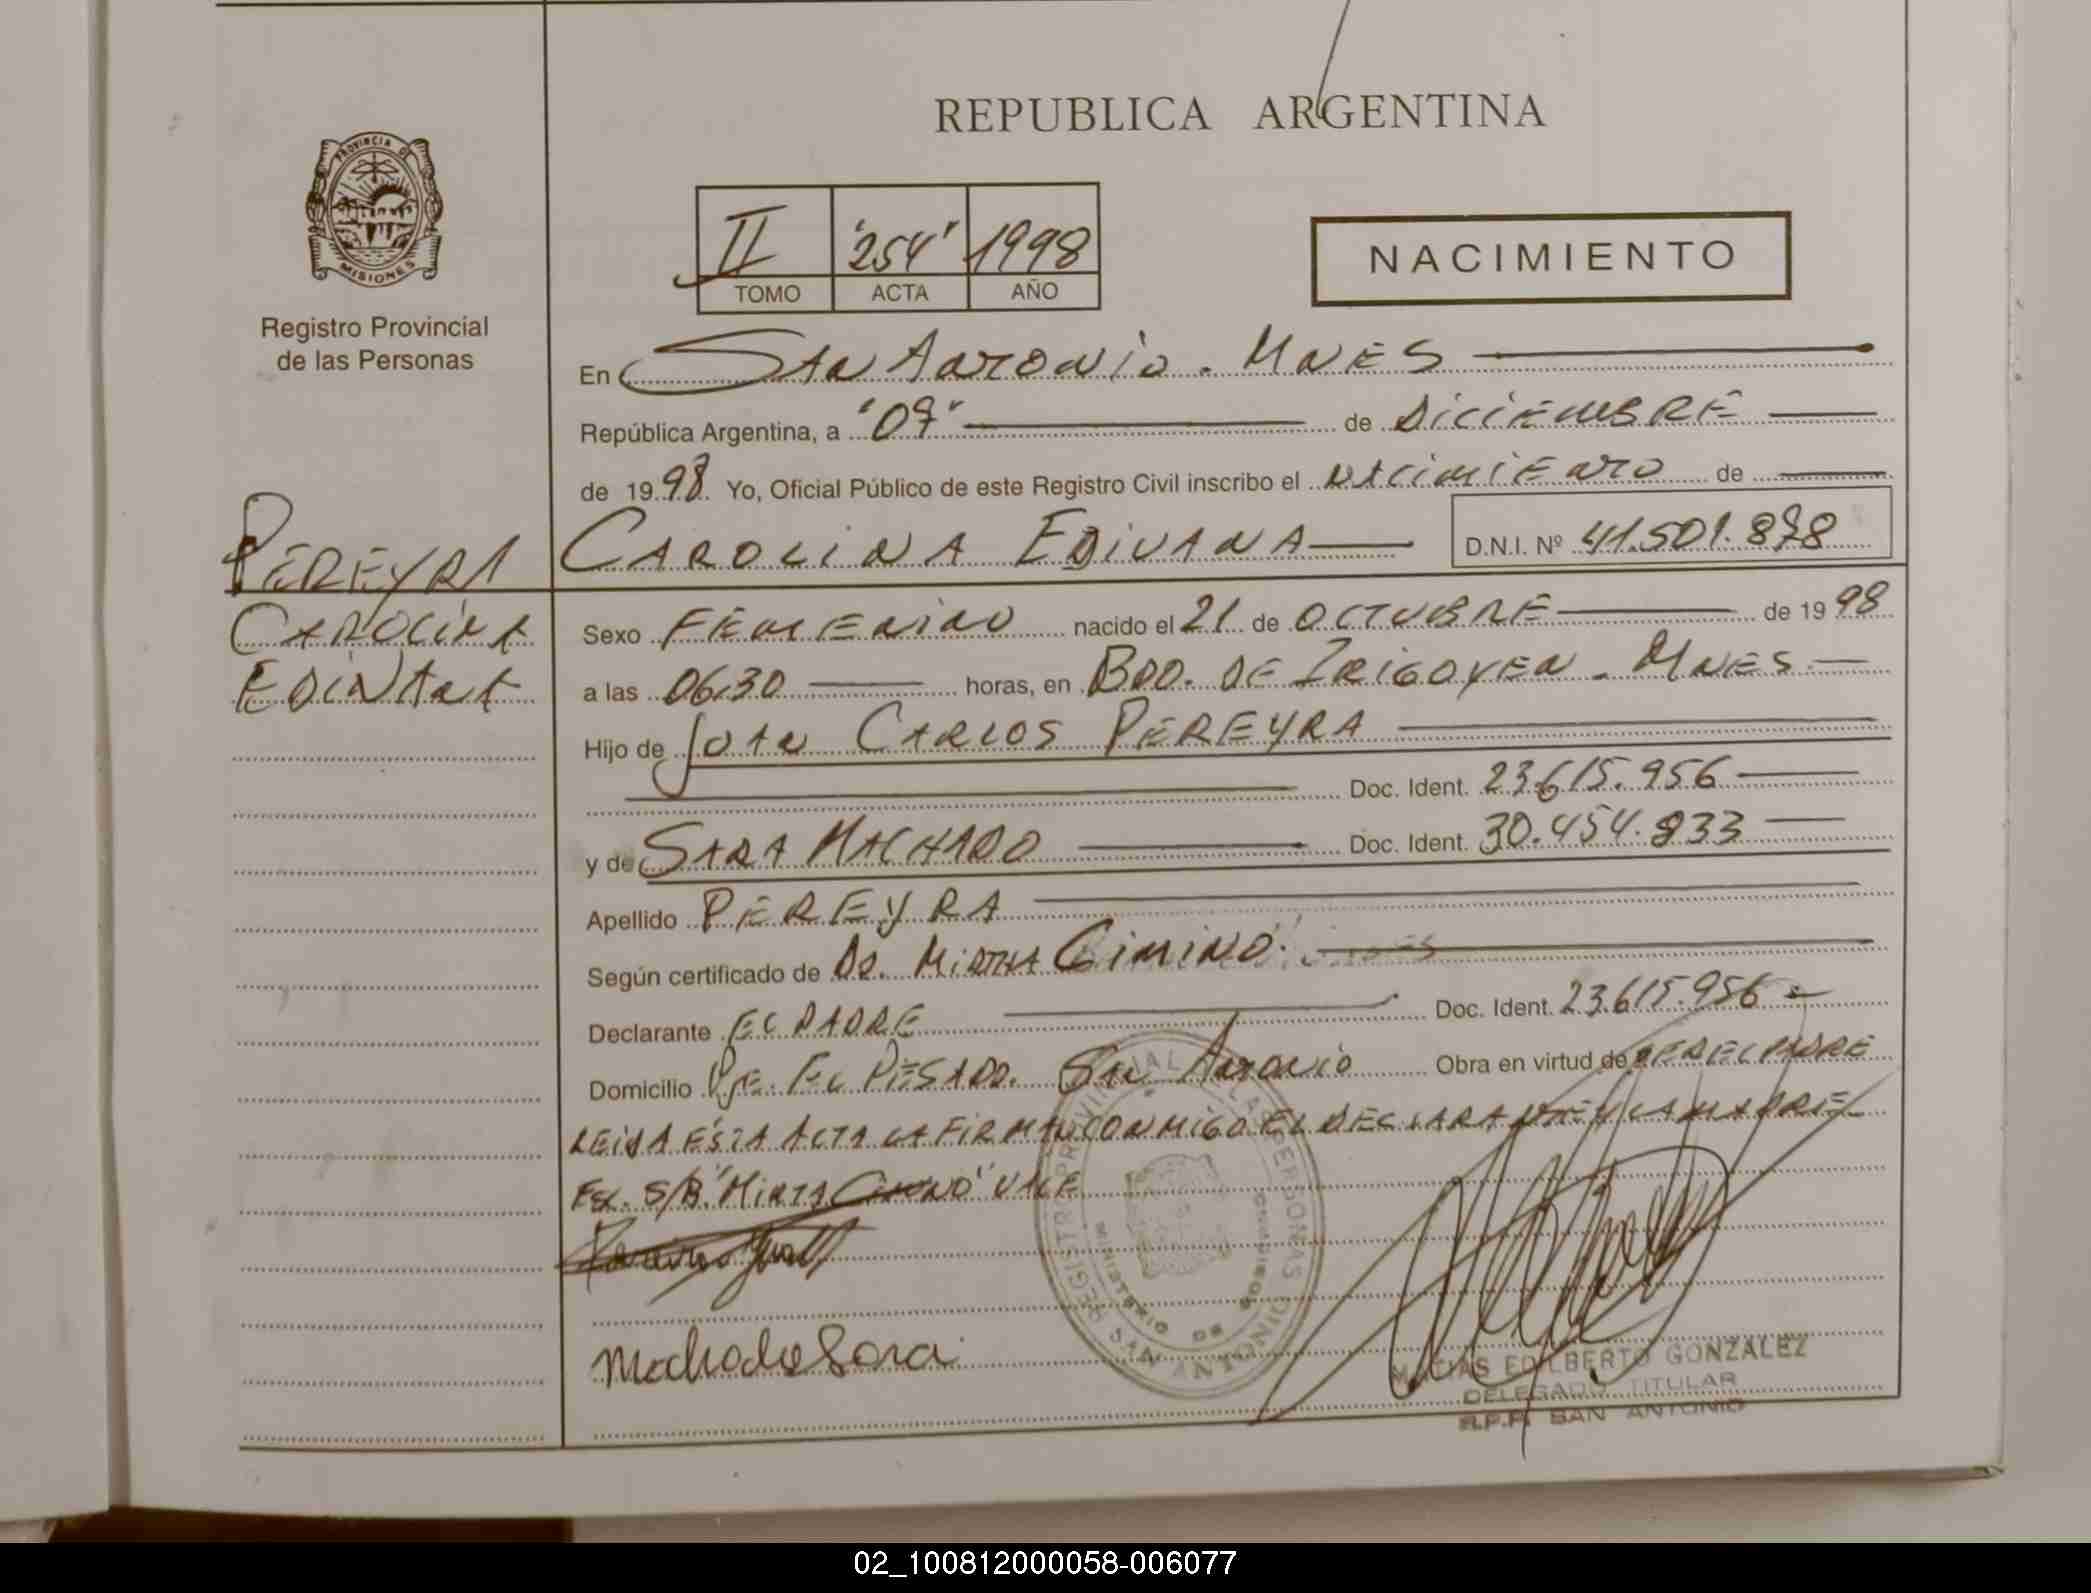 REPUBLICA ARGENTINA
PROVINCIA DE
MISIONES
Registro Provincial
de las Personas
II "254" 1998
TOMO ACTA AÑO
NACIMIENTO
En SAN ANTONIO. MNES
República Argentina, a "07" de DICIEMBRE
de 1998. Yo, Oficial Público de este Registro Civil inscribo el NACIMIENTO de
CAROLINA EDIVANA D.N.I. Nº 41.501.878
PEREYRA
CAROLINA
Sexo FEMENINO nacido el 21 de OCTUBRE de 1998
a las 06:30 horas, en BDO. DE IRIGOYEN. MNES
Hijo de JUAN CARLOS PEREYRA
Doc. Ident. 23.615.956
y de SARA MACHADO Doc. Ident. 30.454.833
Apellido PEREYRA
Según certificado de DR. MIRTHA CIMINO.
Declarante EL PADRE Doc. Ident. 23.615.956
Domicilio PJE. EL PESADO. SAN ANTONIO Obra en virtud de SER EL PADRE
LEIDA ESTA ACTA LA FIRMAN CONMIGO EL DECLARANTE Y LA MADRE
S/B. "MIRTA CIMINO" VALE
Machado Sara
REGISTRO PROVINCIAL DE LAS PERSONAS
MINISTERIO DE GOBIERNO
SAN ANTONIO
MATIAS EDILBERTO GONZALEZ
DELEGADO TITULAR
R.P.P. SAN ANTONIO
02_100812000058-006077